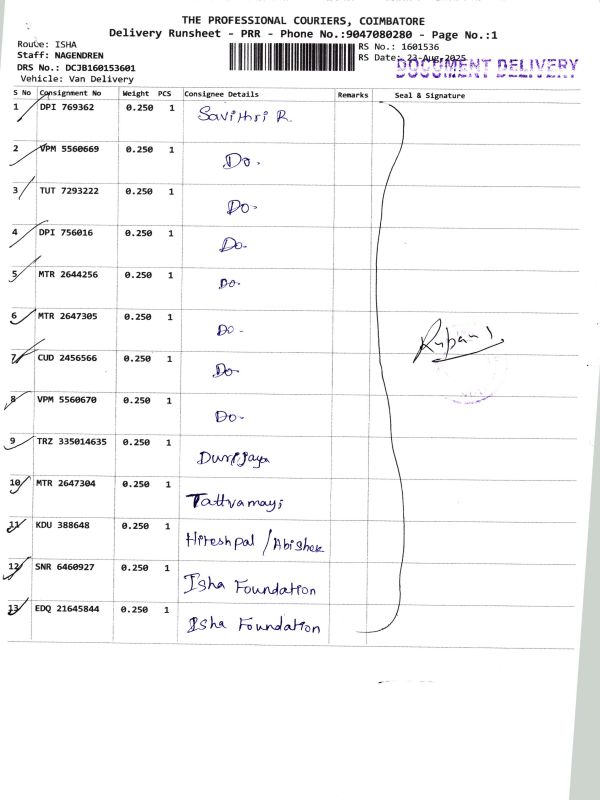 THE PROFESSIONAL COURIERS, COIMBATORE
Delivery Runsheet - PRR - Phone No.:9047080280 - Page No.:1
Route: ISHA
Staff: NAGENDREN
DRS No.: DCJB160153601
Vehicle: Van Delivery
RS No.: 1601536
RS Date: 23-Aug-2025
DOCUMENT DELIVERY
S No Consignment No Weight PCS Consignee Details Remarks Seal & Signature
1 DPI 769362 0.250 1 Savithri R.
2 VPM 5560669 0.250 1 Do-
3 TUT 7293222 0.250 1 Do-
4 DPI 756016 0.250 1 Do-
5 MTR 2644256 0.250 1 Do-
6 MTR 2647305 0.250 1 Do-
7 CUD 2456566 0.250 1 Do-
8 VPM 5560670 0.250 1 Do-
9 TRZ 335014635 0.250 1
10 MTR 2647304 0.250 1 Tattvamayi
11 KDU 388648 0.250 1 Hireshpal / Abishek
12 SNR 6460927 0.250 1 Isha Foundation
13 EDQ 21645844 0.250 1 Isha Foundation